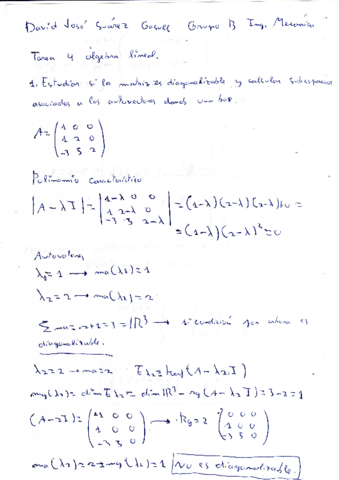 David José Suárez Gosell Grupo B Ing. Mecánica
Tarea 4 álgebra lineal.
1. Estudiar si la matriz es diagonalizable y calcular subespacios
asociados a los autovectores dando una base.
A = (1 0 0
1 2 0
-3 5 2)
Polinomio característico
|A-λI| = |1-λ 0 0
1 2-λ 0
-3 5 2-λ| = (1-λ)(2-λ)(2-λ)+0 =
= (1-λ)(2-λ)²=0
Autovalores
λ₁=1 → ma(λ₁)=1
λ₂=2 → ma(λ₂)=2
1ª condición
diagonalizable.
λ₂=2 → ma=2 Eλ₂=Ker(A-λ₂I)
mg(λ₂)= dim Eλ₂ = dim ℝ³ - rg(A-λ₂I)=3-2=1
(A-2I)= (-1 0 0
1 0 0
-3 5 0) → Rg=2 (0 0 0
1 0 0
-3 5 0)
ma(λ₂)=2≠mg(λ₂)=1 No es diagonalizable.